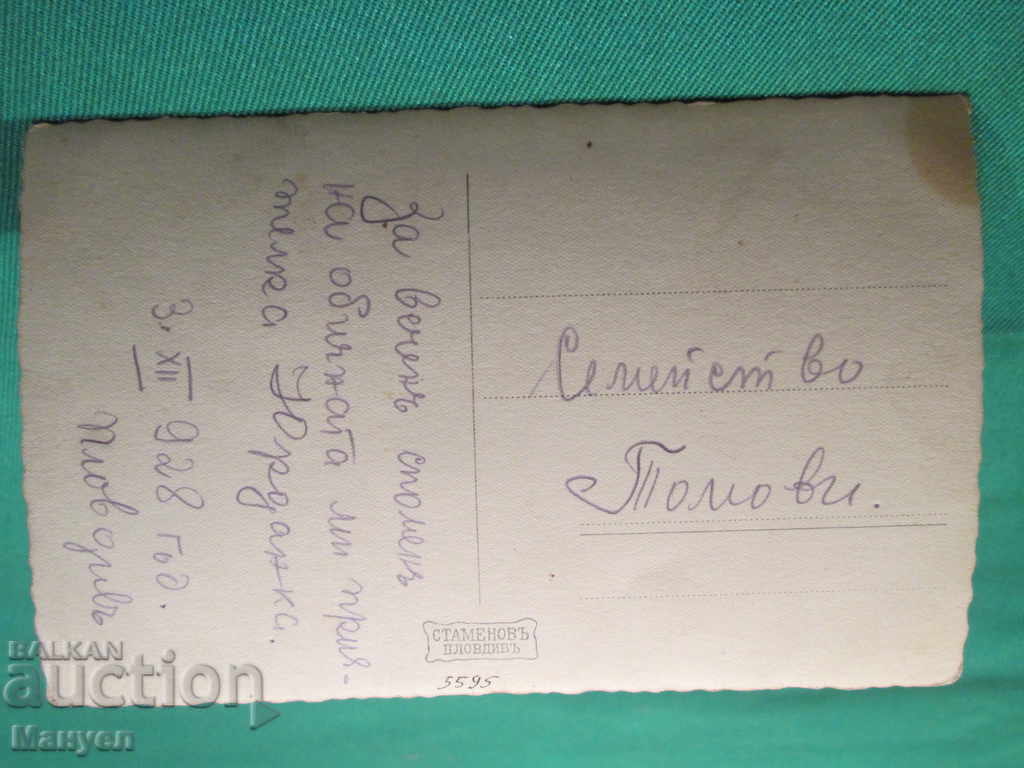 За вечен споменъ
на обичната ми прия-
телка Юрданка.
3. XII 928 год.
Пловдивъ
Семейство
Томови.
СТАМЕНОВЪ
ПЛОВДИВЪ
5595
BALKAN
auction
Мануел